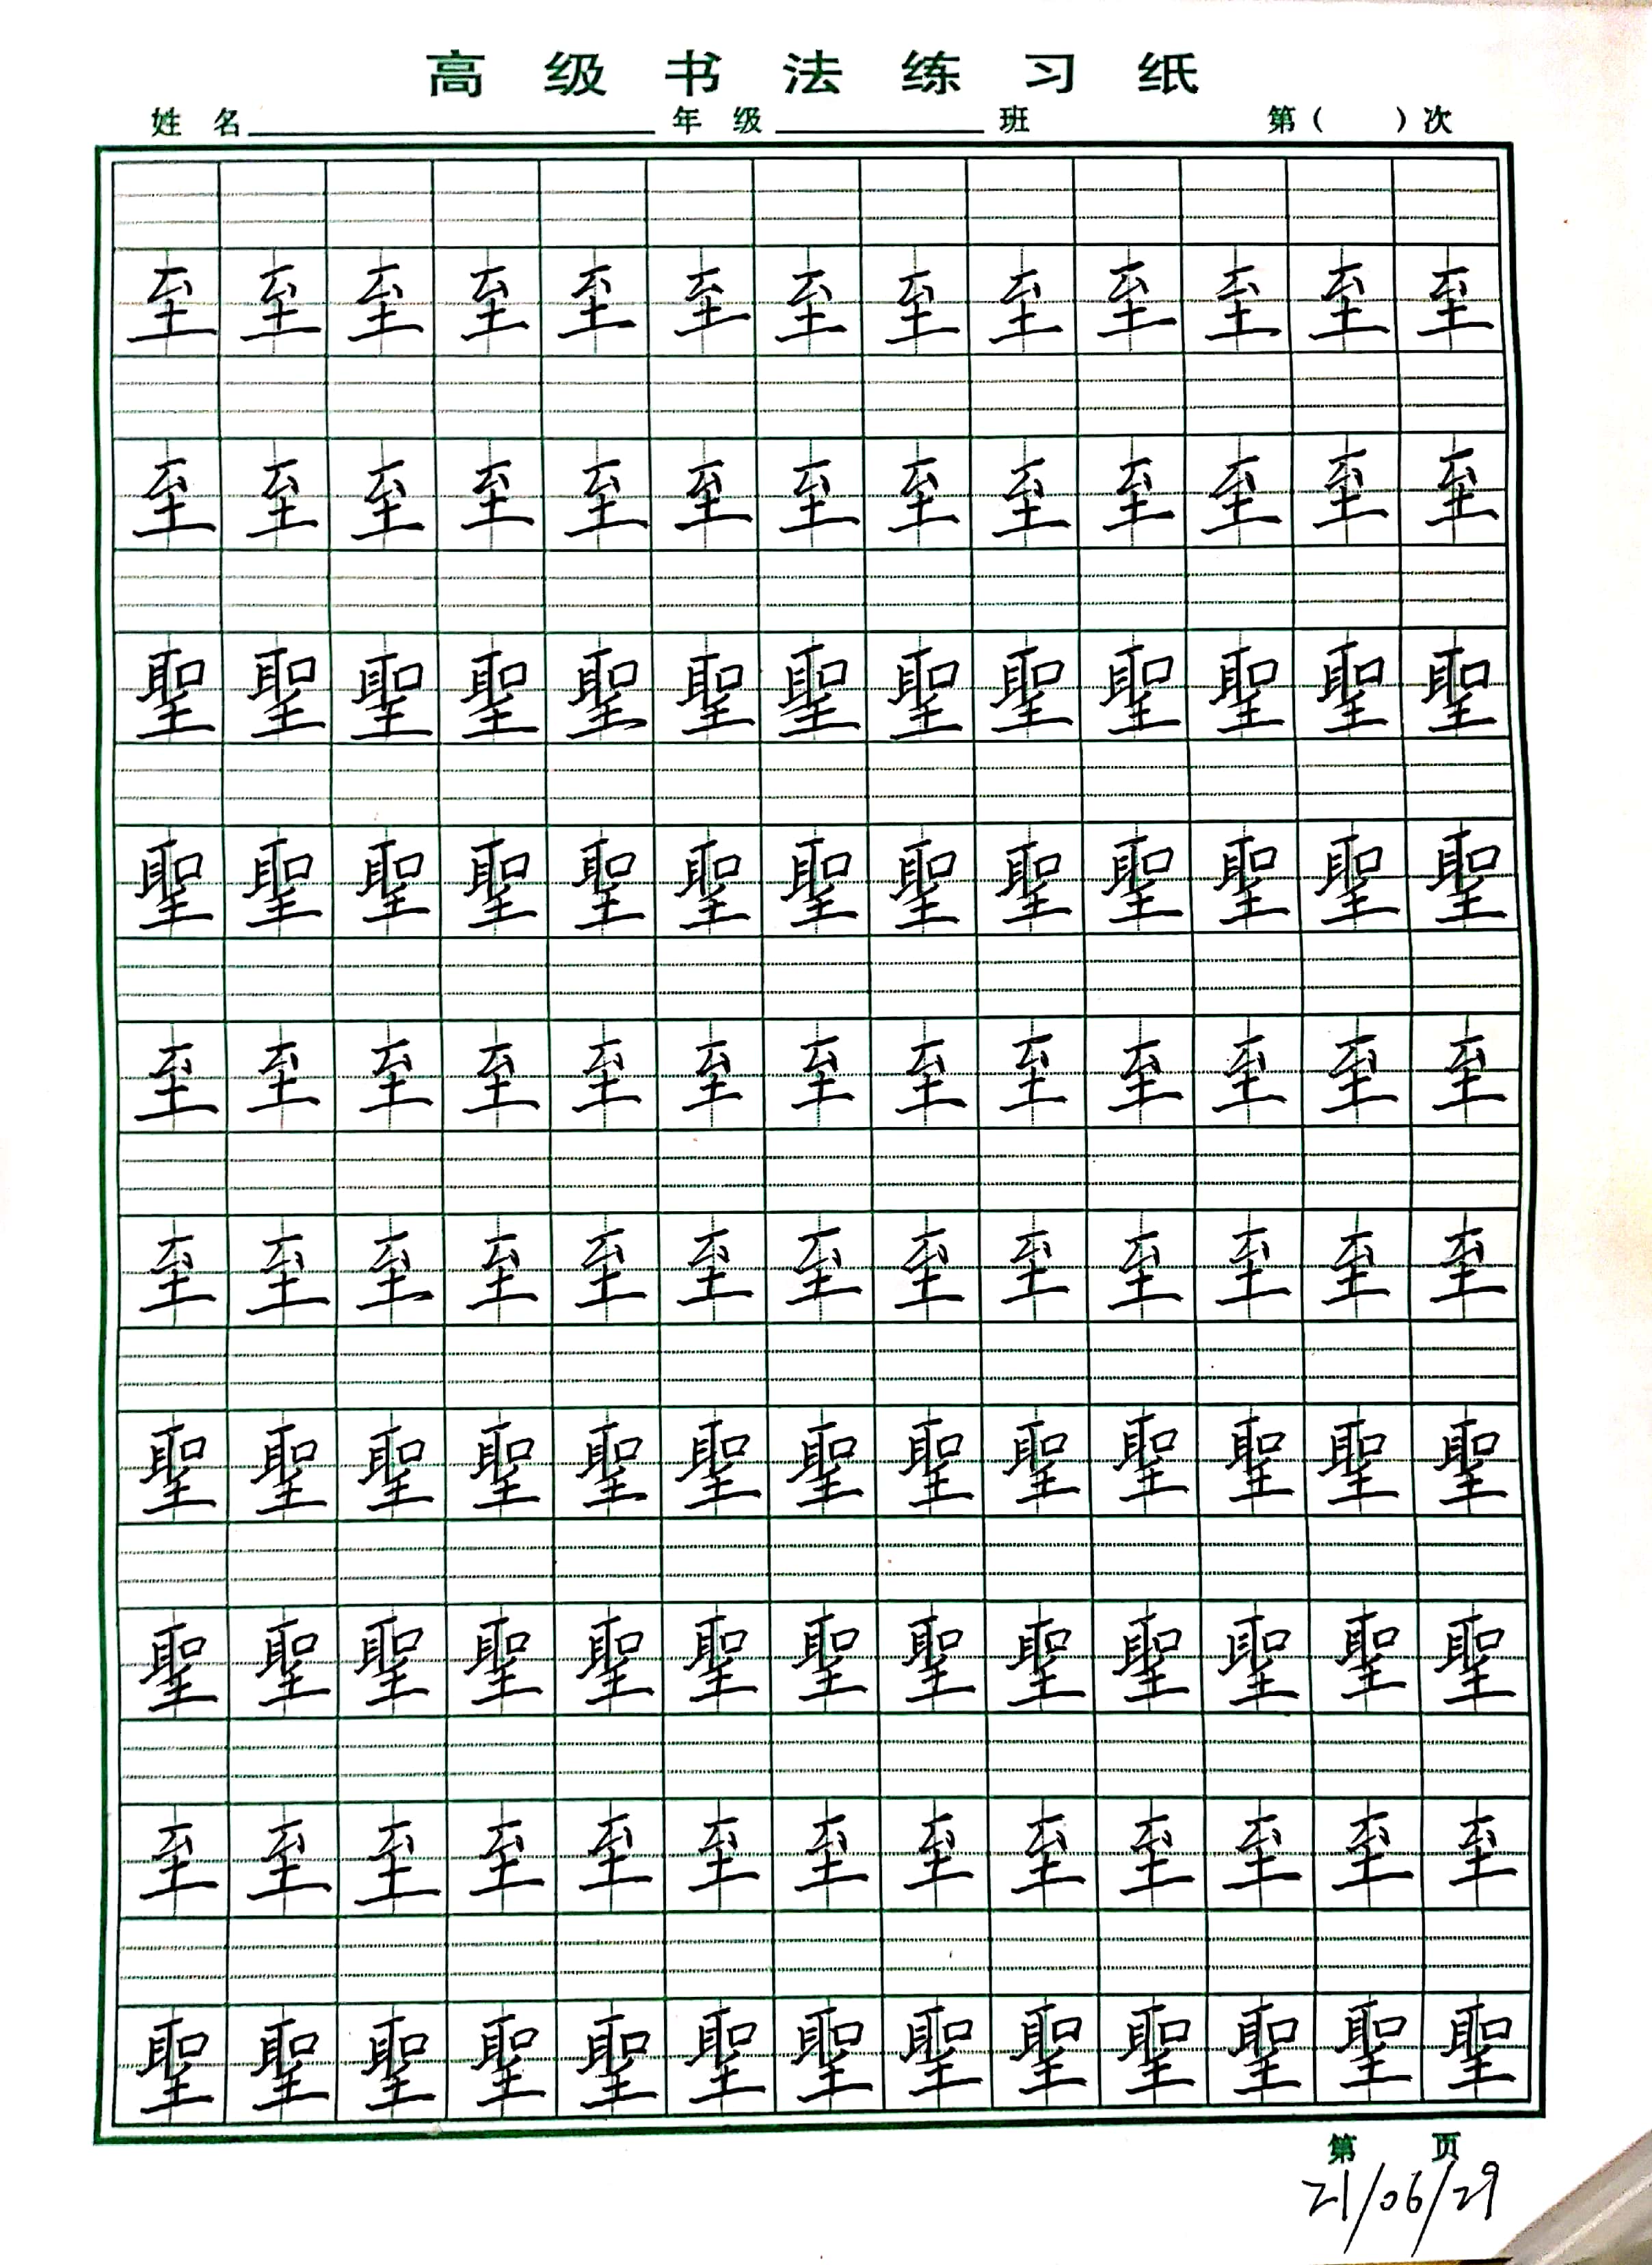 高级书法练习纸
姓 名 年 级 班 第( )次
至至至至至至至至至至至至至
至至至至至至至至至至至至至
聖聖聖聖聖聖聖聖聖聖聖聖聖
聖聖聖聖聖聖聖聖聖聖聖聖聖
至至至至至至至至至至至至至
至至至至至至至至至至至至至
聖聖聖聖聖聖聖聖聖聖聖聖聖
聖聖聖聖聖聖聖聖聖聖聖聖聖
至至至至至至至至至至至至至
聖聖聖聖聖聖聖聖聖聖聖聖聖
第 页
21/06/29